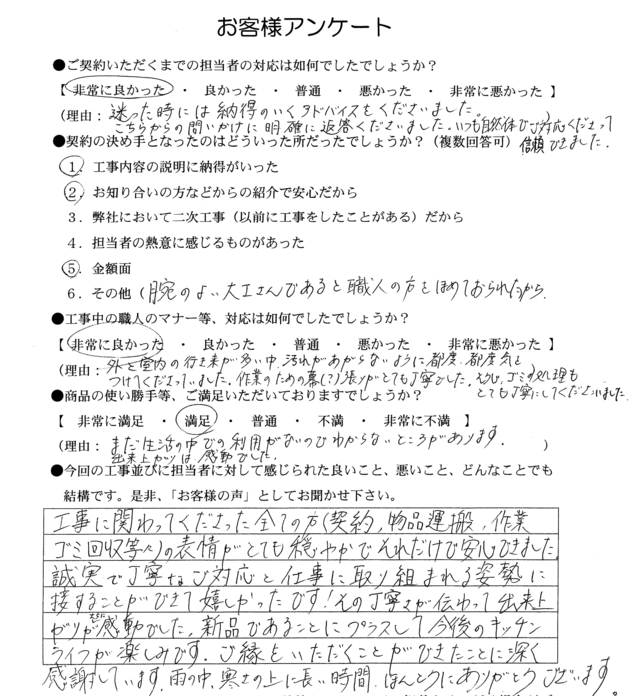 お客様アンケート
●ご契約いただくまでの担当者の対応は如何でしたでしょうか？
【 非常に良かった ・ 良かった ・ 普通 ・ 悪かった ・ 非常に悪かった 】
（理由： 迷った時には納得のいくアドバイスをくださいました。
こちらからの問いかけに明確に返答くださいました。いつも自然体でご対応くださって
●契約の決め手となったのはどういった所だったでしょうか？（複数回答可） 信頼できました。
１．工事内容の説明に納得がいった
２．お知り合いの方などからの紹介で安心だから
３．弊社において二次工事（以前に工事をしたことがある）だから
４．担当者の熱意に感じるものがあった
５．金額面
６．その他（ 腕のよい大工さんであると職人の方をほめておられたから。
●工事中の職人のマナー等、対応は如何でしたでしょうか？
【 非常に良かった ・ 良かった ・ 普通 ・ 悪かった ・ 非常に悪かった 】
（理由： 外と室内の行き来が多い中、汚れがあがらないように都度、都度気を
つけてくださっていました。作業のための幕(?)張りがとても丁寧でした。 ゴミの処理も
●商品の使い勝手等、ご満足いただいておりますでしょうか？ とても丁寧にしてくださいました。
【 非常に満足 ・ 満足 ・ 普通 ・ 不満 ・ 非常に不満 】
（理由： まだ生活の中での利用がないのでわからないところがあります。 ）
出来上がりは感動でした。
●今回の工事並びに担当者に対して感じられた良いこと、悪いこと、どんなことでも
結構です。是非、「お客様の声」としてお聞かせ下さい。
工事に関わってくださった全ての方（契約、物品運搬、作業
ゴミ回収等々）の表情がとても穏やかでそれだけで安心できました。
誠実で丁寧なご対応と仕事に取り組まれる姿勢に
接することができて嬉しかったです！その丁寧さが伝わって出来上
がりが感動でした。新品であることにプラスして今後のキッチン
ライフが楽しみです。ご縁をいただくことができたことに深く
感謝しています。雨の中、寒さの上に長い時間、ほんとうにありがとうございます。